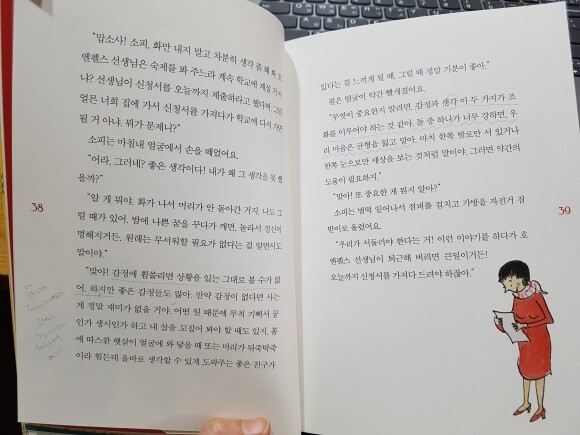 "맙소사! 소피, 화만 내지 말고 차분히 생각 좀 해 봐.
엔펠스 선생님은 숙제를 봐 주느라 계속 학교에 계실
나? 선생님이 신청서를 오늘까지 제출하라고 했다며. 그럼
얼른 너희 집에 가서 신청서를 가져다가 학교에 다시 가면
될 거 아냐. 뭐가 문제니?"
소피는 마침내 얼굴에서 손을 떼었어요.
"어라, 그러네? 좋은 생각이다! 내가 왜 그 생각을 못 했
을까?"
38
"알 게 뭐야. 화가 나서 머리가 안 돌아간 거지. 나도 그
럴 때가 있어. 밤에 나쁜 꿈을 꾸다가 깨면, 놀라서 정신이
멍해지거든. 원래는 무서워할 필요가 없다는 걸 알면서도
말이야."
"맞아! 감정에 휩쓸리면 상황을 있는 그대로 볼 수가 없
어. 하지만 좋은 감정들도 많아. 만약 감정이 없다면 사는
게 정말 재미가 없을 거야. 어떤 일 때문에 무척 기뻐서 꿈
인가 생시인가 하고 내 살을 꼬집어 봐야 할 때도 있지. 봄
에 따스한 햇살이 얼굴에 와 닿을 때 또는 머리가 뒤죽박죽
이라 힘든데 올바로 생각할 수 있게 도와주는 좋은 친구가
있다는 걸 느끼게 될 때, 그럴 때 정말 기분이 좋아."
필은 얼굴이 약간 빨개졌어요.
"무엇이 중요한지 알려면, 감정과 생각 이 두 가지가 조
화를 이루어야 하는 것 같아. 둘 중 하나가 너무 강하면, 우
리 마음은 균형을 잃고 말아. 마치 한쪽 발로만 서 있거나
한쪽 눈으로만 세상을 보는 것처럼 말이야. 그러면 약간의
도움이 필요하지."
"맞아! 또 중요한 게 뭔지 알아?"
소피는 벌떡 일어나서 점퍼를 걸치고 가방을 자전거 짐
받이로 올렸어요.
39
"우리가 서둘러야 한다는 거! 이런 이야기를 하다가 호
엔펠스 선생님이 퇴근해 버리면 큰일이거든!
오늘까지 신청서를 가져다 드려야 하잖아."